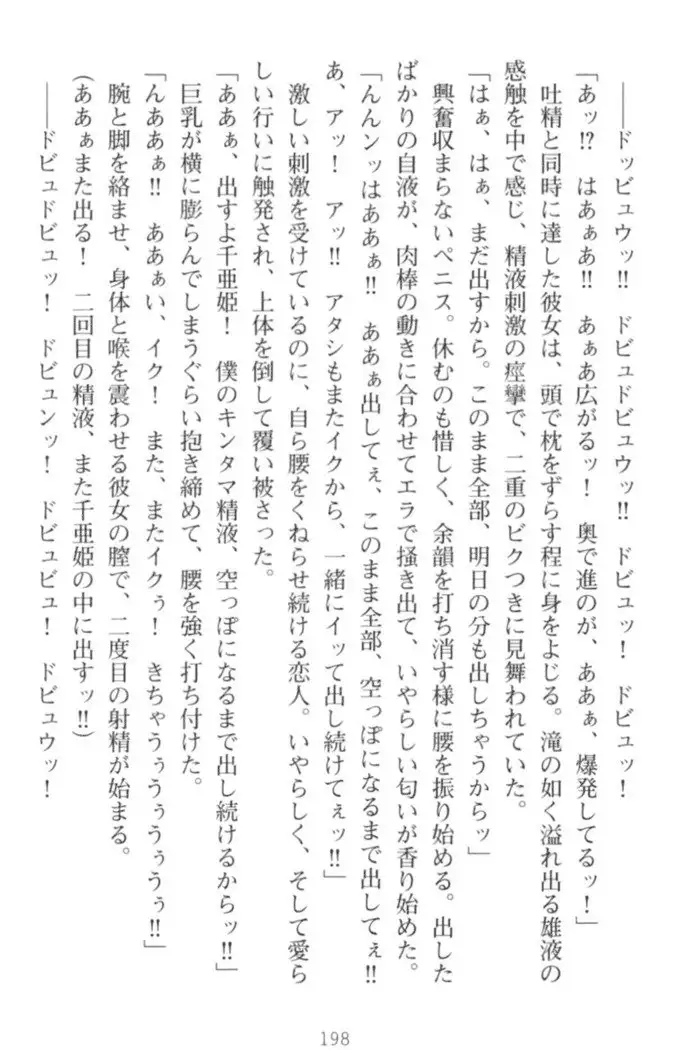 ――ドッビュウッ!! ドビュドビュウッ!! ドビュッ! ドビュッ!
「あッ!? はあぁあ!! あぁあ広がるッ! 奥で進のが、ああぁ、爆発してるッ!」
吐精と同時に達した彼女は、頭で枕をずらす程に身をよじる。滝の如く溢れ出る雄液の
感触を中で感じ、精液刺激の痙攣で、二重のビクつきに見舞われていた。
「はぁ、はぁ、まだ出すから。このまま全部、明日の分も出しちゃうからッ」
興奮収まらないペニス。休むのも惜しく、余韻を打ち消す様に腰を振り始める。出した
ばかりの自液が、肉棒の動きに合わせてエラで掻き出て、いやらしい匂いが香り始めた。
「んんンッはああぁ!! ああぁ出してぇ、このまま全部、空っぽになるまで出してぇ!!
あ、アッ! アッ!! アタシもまたイクから、一緒にイッて出し続けてぇッ!!」
激しい刺激を受けているのに、自ら腰をくねらせ続ける恋人。いやらしく、そして愛ら
しい行いに触発され、上体を倒して覆い被さった。
「ああぁ、出すよ千亜姫! 僕のキンタマ精液、空っぽになるまで出し続けるからッ!!」
巨乳が横に膨らんでしまうぐらい抱き締めて、腰を強く打ち付けた。
「んああぁ!! ああぁい、イク! また、またイクぅ! きちゃうぅうぅうぅうぅ!!」
腕と脚を絡ませ、身体と喉を震わせる彼女の膣で、二度目の射精が始まる。
(ああぁまた出る! 二回目の精液、また千亜姫の中に出すッ!!)
――ドビュドビュッ! ドビュンッ! ドビュビュ! ドビュウッ!
198